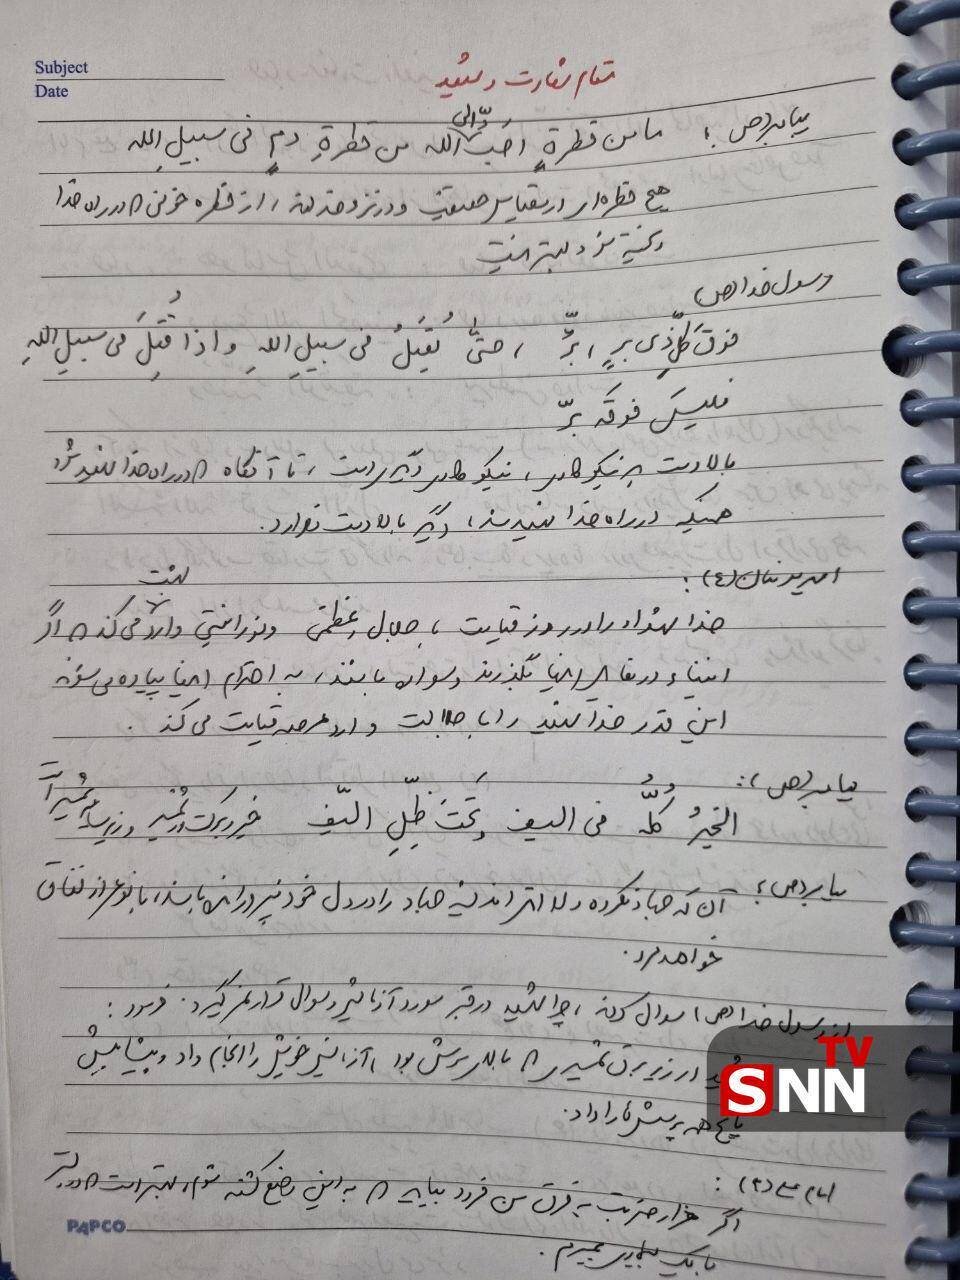 Subject
Date
مقام شهادت و شهید
پیامبر(ص):
ما من قطرةٍ احَبّ الی الله من قطرةِ دمٍ فی سبیلِ الله
هیچ قطره‌ای در مقیاس حقیقت و در نزد خداوند، از قطره خونی که در راه خدا
ریخته شود بهتر نیست
رسول خدا(ص)
فوقَ کلِّ ذی برٍ، برٌّ، حتیٰ یُقتَلُ فی سبیلِ اللهِ و اذا قُتِلَ فی سبیلِ اللهِ
فلیسَ فوقَه برّ
بالادست هر نیکوکاری، نیکوکاری دیگری است، تا آنگاه که در راه خدا شهید شود
همینکه در راه خدا شهید شد، دیگر بالادست ندارد.
امیرمؤمنان(ع):
خدا شهداء را در روز قیامت با جلال و عظمتی و نورانیتی وارد بهشت می‌کند که اگر
انبیاء در مقابل آنها بگذرند و سواره باشند، به احترام آنها پیاده می‌شوند
این قدر خدا شهید را با جلالت وارد عرصه قیامت می‌کند.
پیامبر(ص):
الخیرُ کلُّه فی السیف و تَحتَ ظِلِّ السّیف خیر و برکت در شمشیر و زیر سایه شمشیر است
پیامبر(ص):
آن که جهاد نکرده و لااقل اندیشه جهاد را در دل خود نپرورانده باشد، با نوعی از نفاق
خواهد مرد.
از رسول خدا(ص) سوال کردند، چرا شهید در قبر مورد آزمایش و سوال قرار نمی‌گیرد. فرمود:
شهید در زیر برق شمشیری که بالای سرش بود، آزمایش خویش را انجام داد و پیشاپیش
پاسخ همه پرسش‌ها را داد.
امام علی(ع):
اگر هزار ضربت به فرق من فرود بیاید که به این وضع کشته شوم، بهتر است که در بستر
با یک بیماری بمیرم.
PAPCO
SNN TV